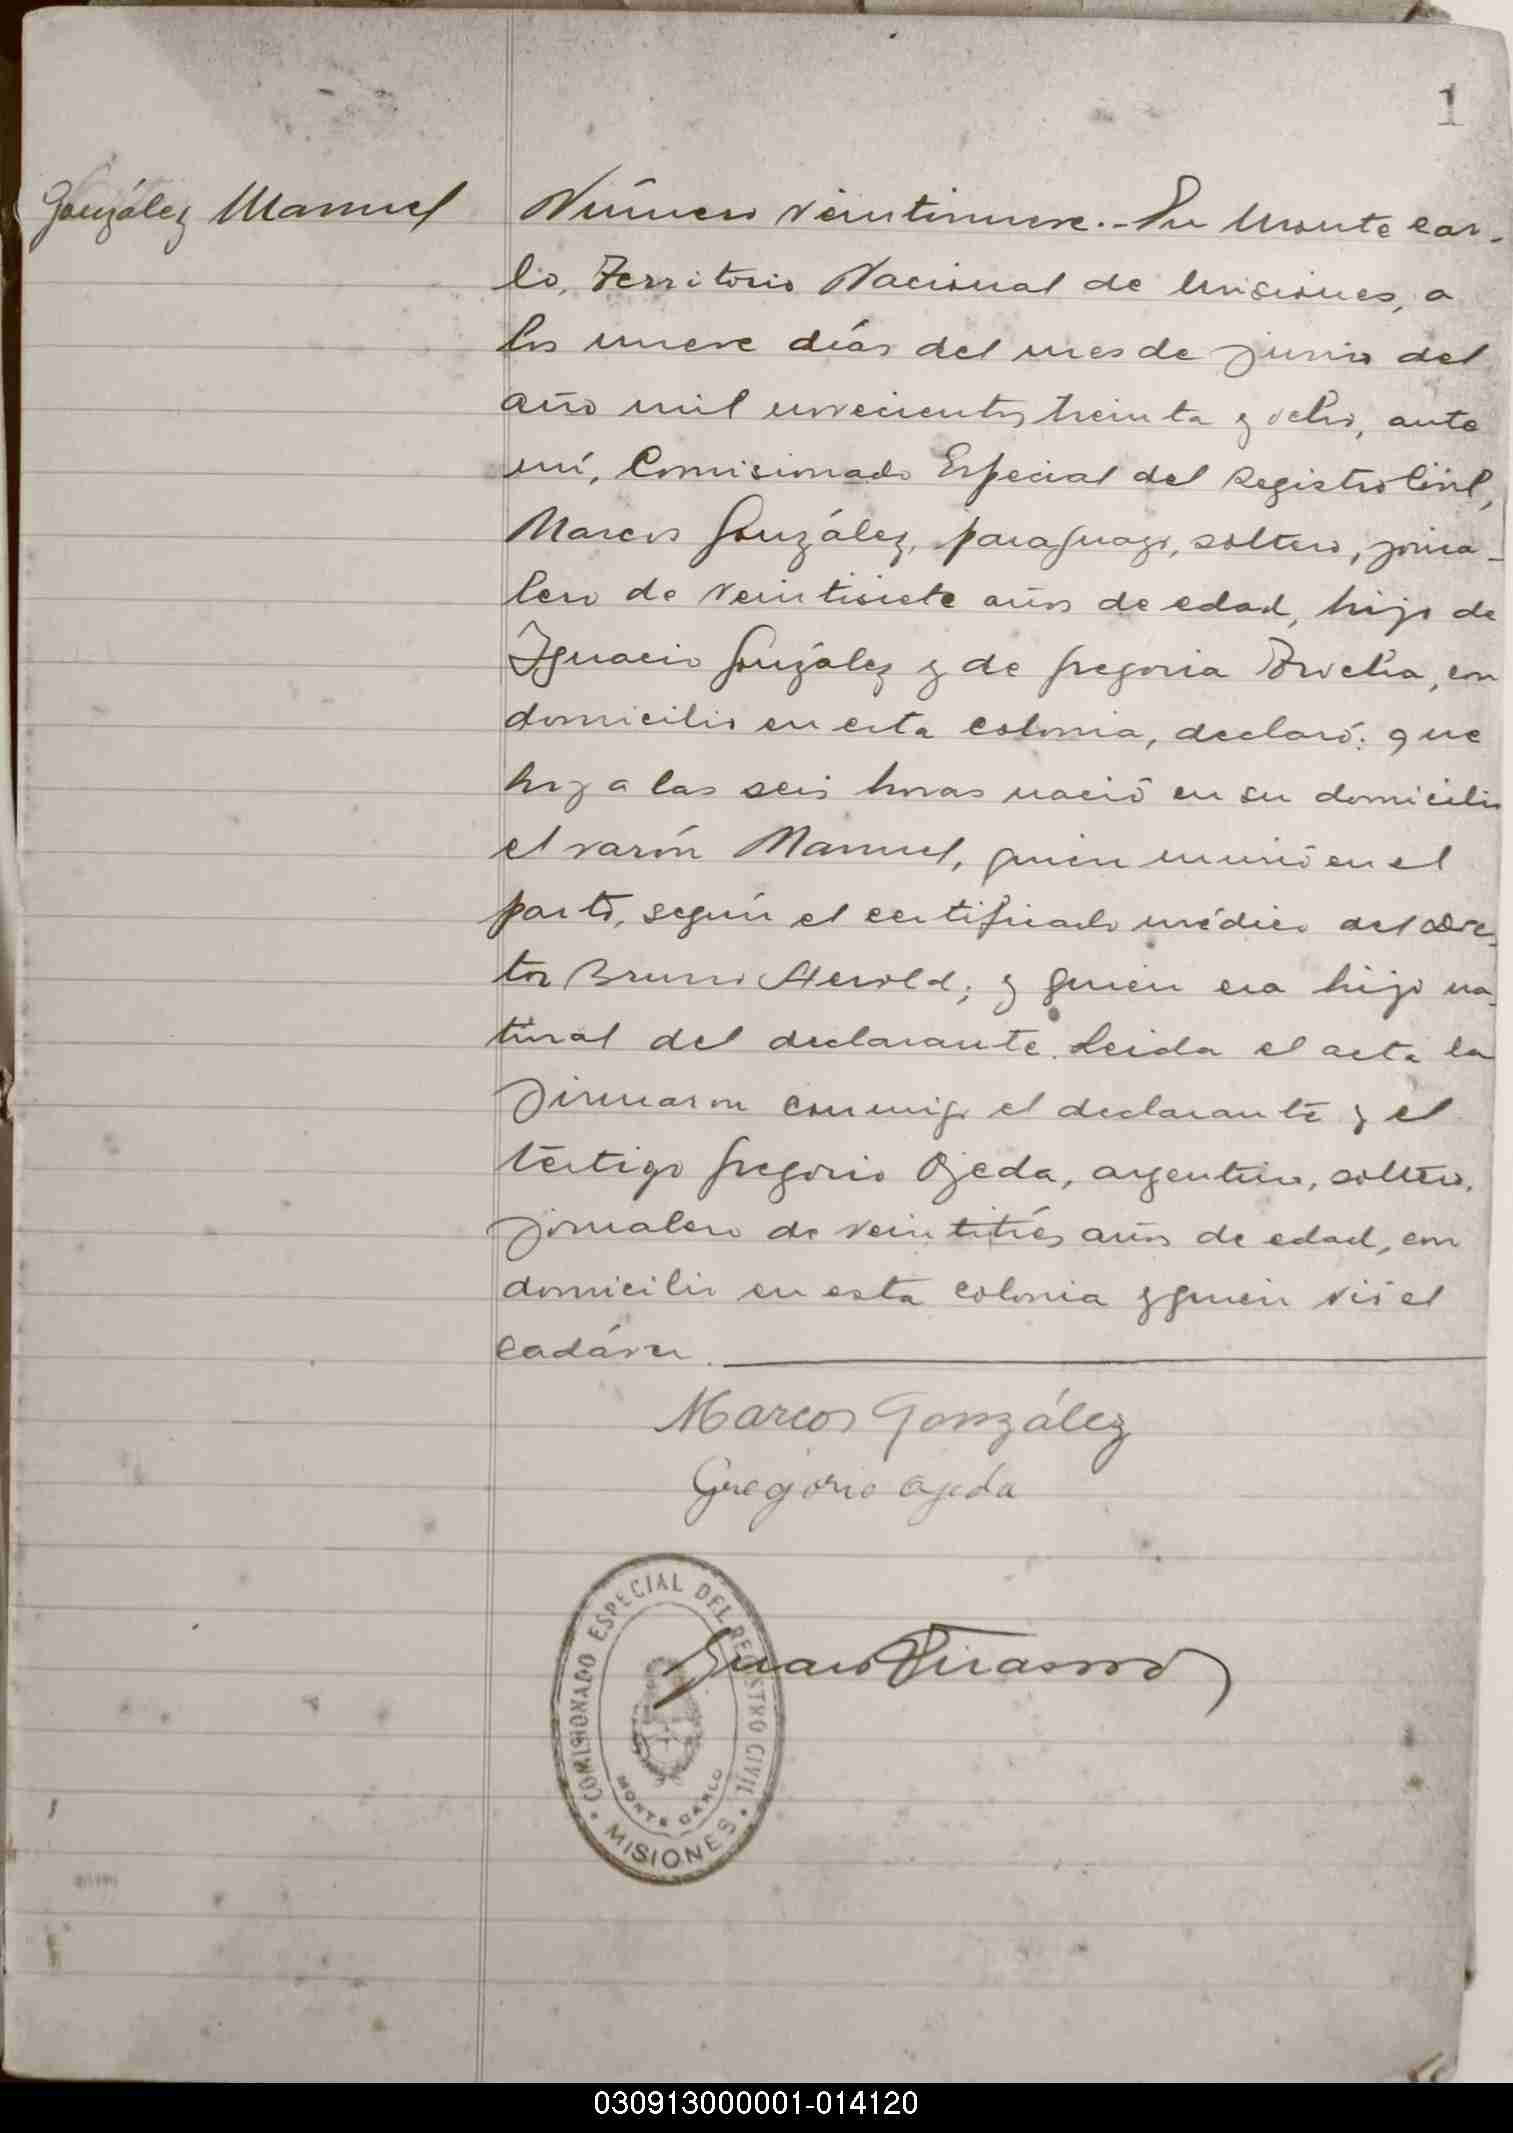 1
González Manuel
Número veintinueve.- En Monte Car-
lo, Territorio Nacional de Misiones, a
los nueve días del mes de junio del
año mil novecientos treinta y ocho, ante
mí, Comisionado Especial del Registro Civil,
Marcos González, paraguayo, soltero, jorna-
lero de veintisiete años de edad, hijo de
Ignacio González y de Gregoria, con
domicilio en esta colonia, declaró: que
hoy a las seis horas nació en su domicilio
el varón Manuel, quien murió en el
parto, según el certificado médico del Doc-
tor Bruno Herold; y quien era hijo na-
tural del declarante. Leida el acta la
firmaron conmigo el declarante y el
testigo Gregorio Ojeda, argentino, soltero,
jornalero de veintitrés años de edad, con
domicilio en esta colonia y quien vió el
cadáver.
Marcos González
Gregorio Ojeda
COMISIONADO ESPECIAL DEL REGISTRO CIVIL
MONTE CARLO
MISIONES
030913000001-014120